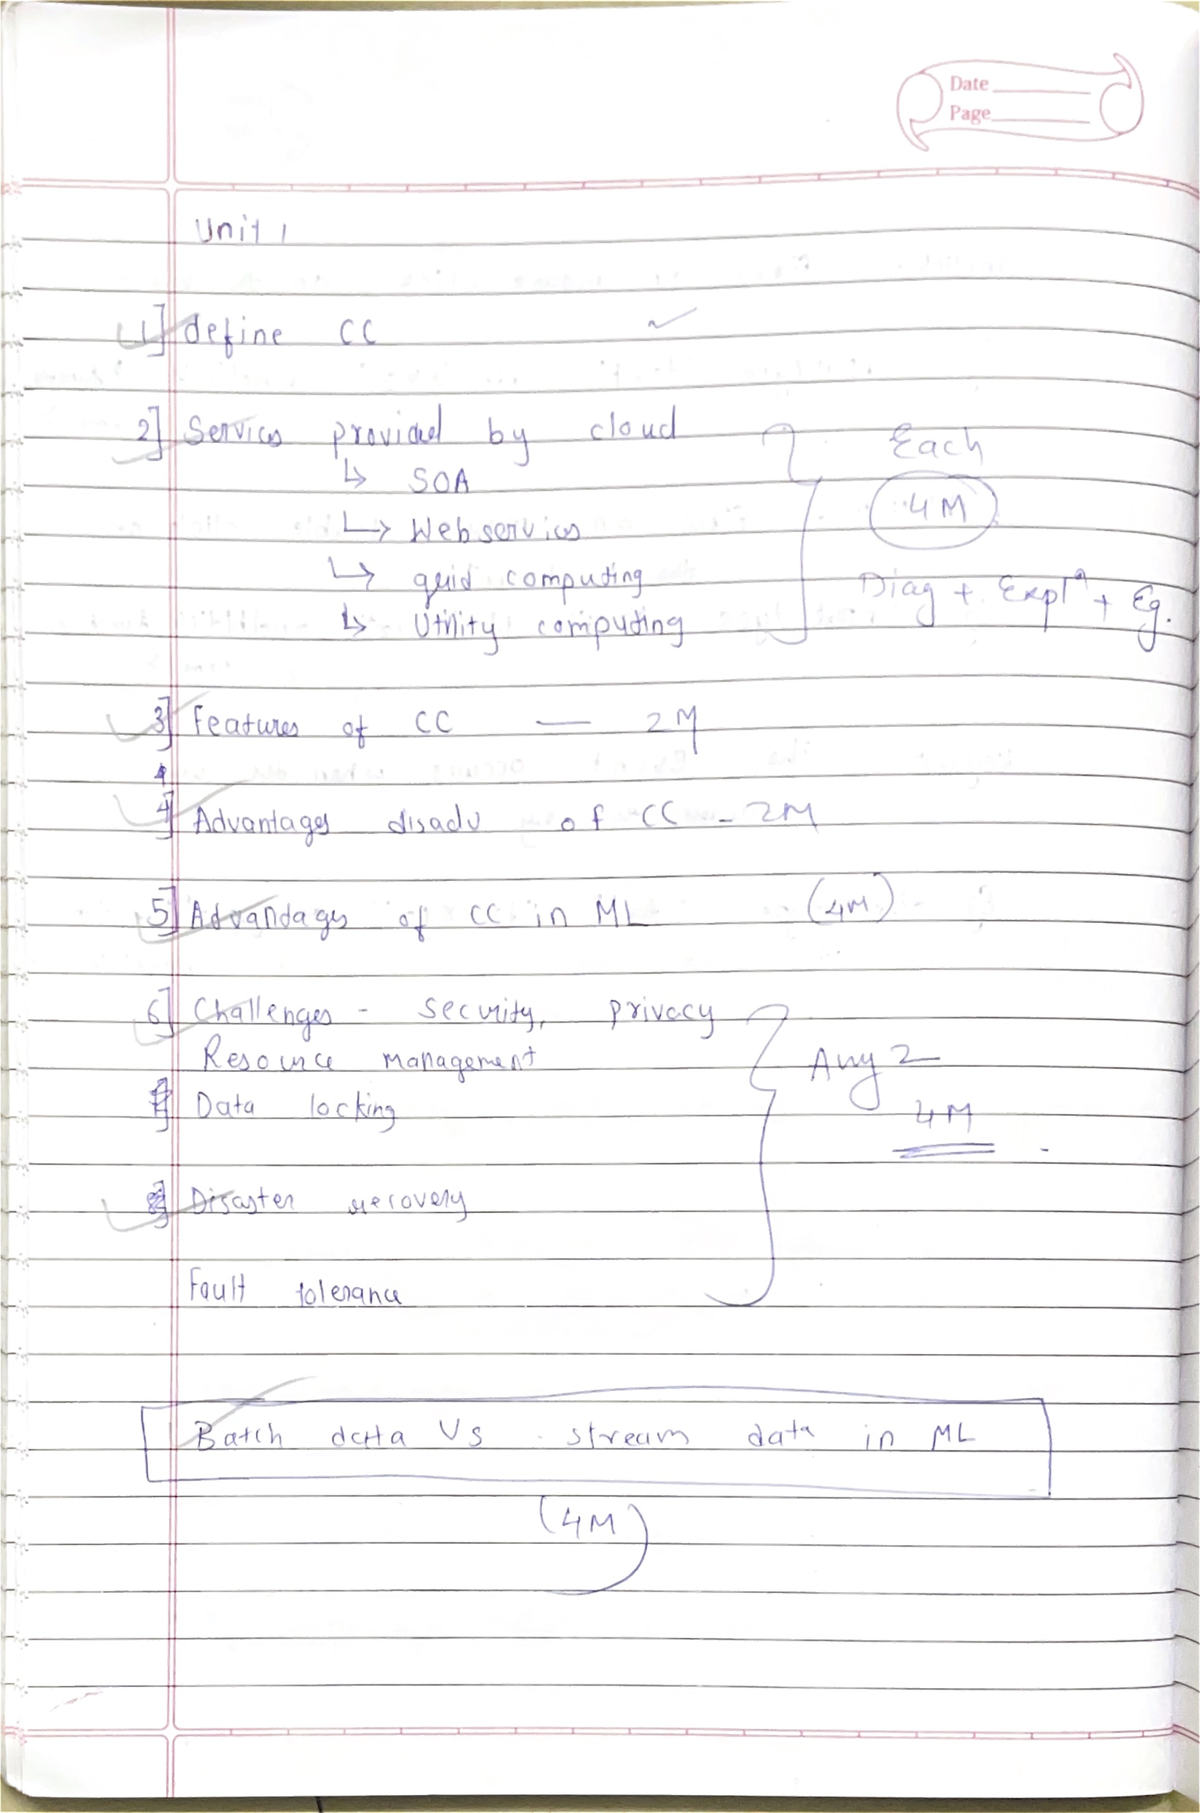 Date
Page
Unit 1
1] define CC
2] Services provided by cloud
↳ SOA
↳ Webservices
↳ grid computing
↳ Utility computing
Each
4M
Diag + Explⁿ + Eg.
3] Features of CC — 2M
4] Advantages disadv of CC - 2M
5] Advandages of CC in ML (4M)
6] Challenges - security, privacy
Resource management
Data locking
Disaster recovery
Fault tolerance
Any 2
4M
Batch data Vs stream data in ML
(4M)